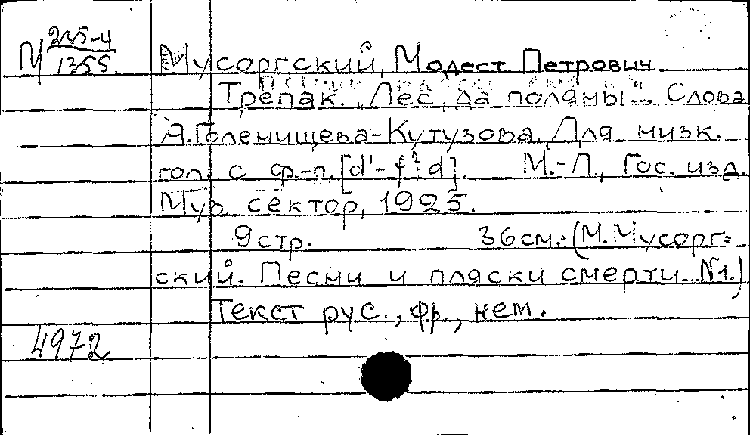 М 235-4/1355
Мусоргский, Модест Петрович
Трепак. "Лес, да поляны"... Слова
А. Голенищева-Кутузова. Для низк.
гол. с ф.-п. [d'-f² d]. М.-Л., Гос. изд.
Муз. сектор, 1925.
9 стр. 36 см. (М. Мусорг-
ский. Песни и пляски смерти. №1.)
Текст рус., фр., нем.
4972